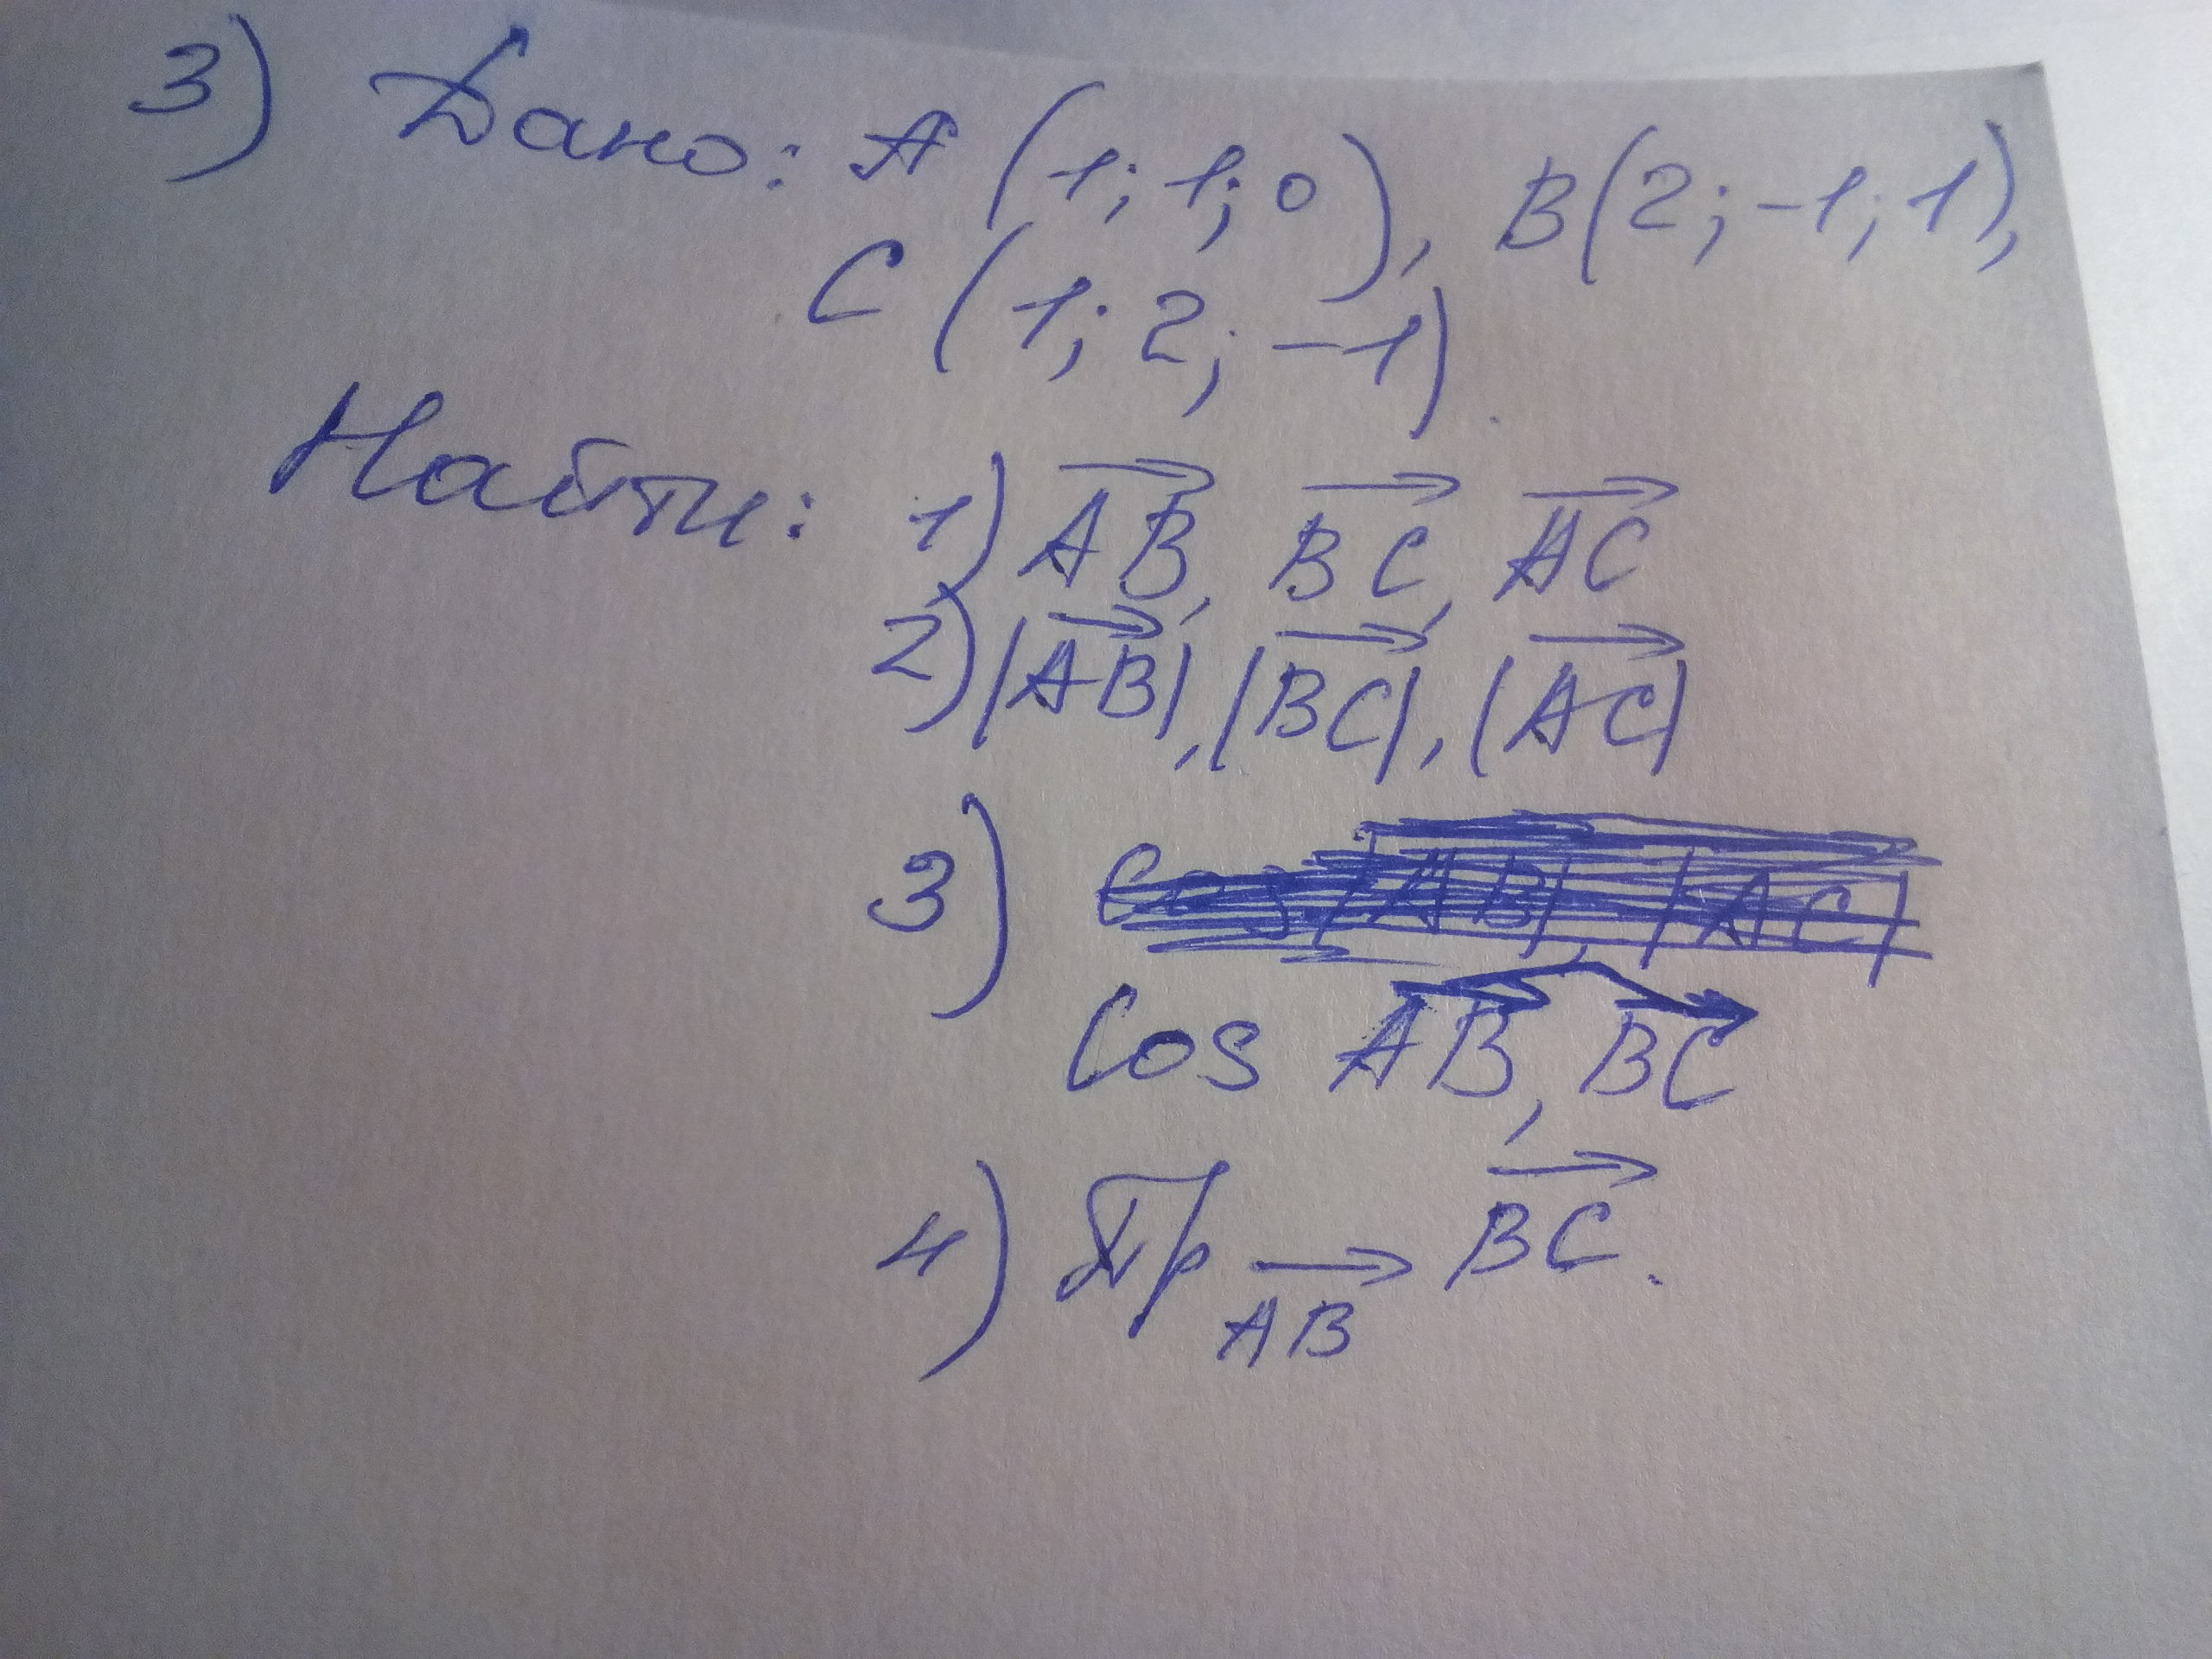 3) Дано: A (1; 1; 0), B(2; -1; 1),
C (1; 2; -1).
Найти: 1) AB, BC, AC
2) |AB|, |BC|, |AC|
3) cos |AB|, |AC|
cos AB, BC
4) Пр AB BC.